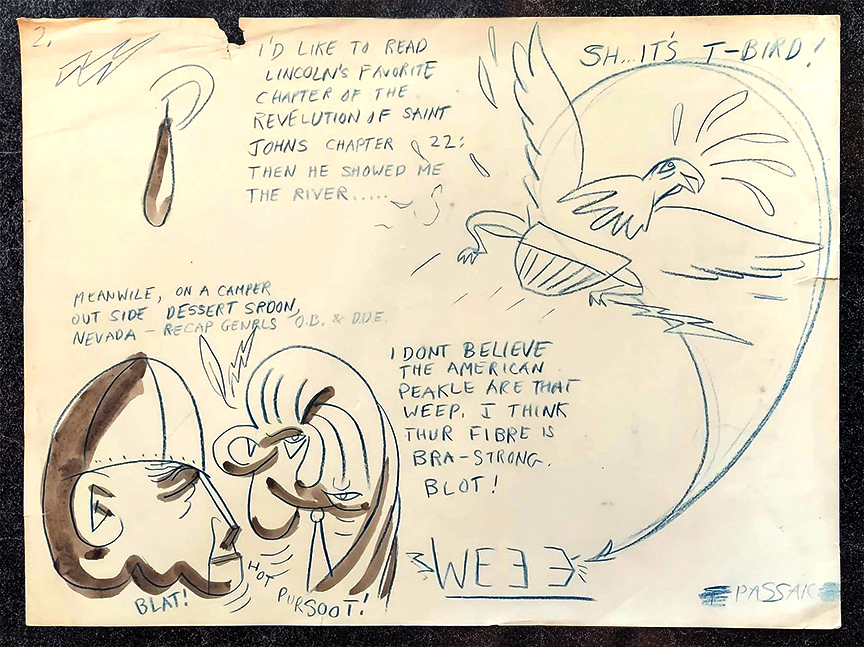 2.
I'D LIKE TO READ
LINCOLN'S FAVORITE
CHAPTER OF THE
REVELUTION OF SAINT
JOHNS CHAPTER 22:
THEN HE SHOWED ME
THE RIVER.....
SH...IT'S T-BIRD!
MEANWILE, ON A CAMPER
OUT SIDE DESSERT SPOON,
NEVADA - RECAP GENRLS O.B. & D.D.E.
I DONT BELIEVE
THE AMERICAN
PEAKLE ARE THAT
WEEP. I THINK
THUR FIBRE IS
BRA-STRONG.
BLOT!
WEEE
BLAT!
HOT
PURSOOT!
PASSAIC